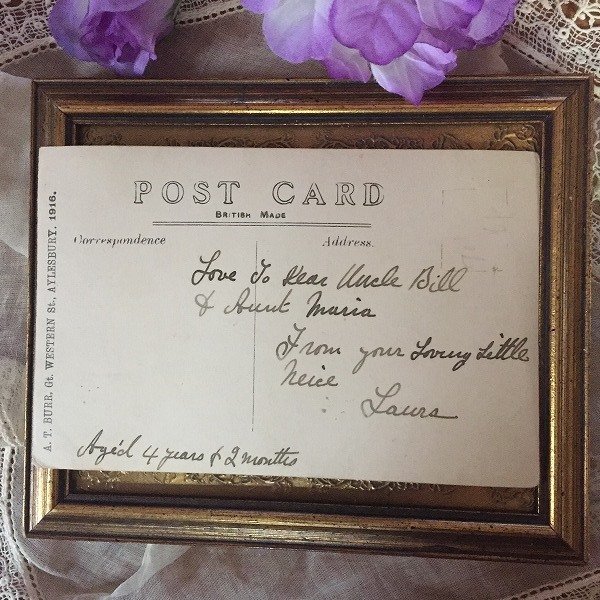 POST CARD
BRITISH MADE
Correspondence
Address.
Love To Dear Uncle Bill
& Aunt Maria
From your Loving Little
Neice
Laura
Aged 4 years & 2 months
A. T. BURR, Gt. WESTERN St., AYLESBURY. 1916.